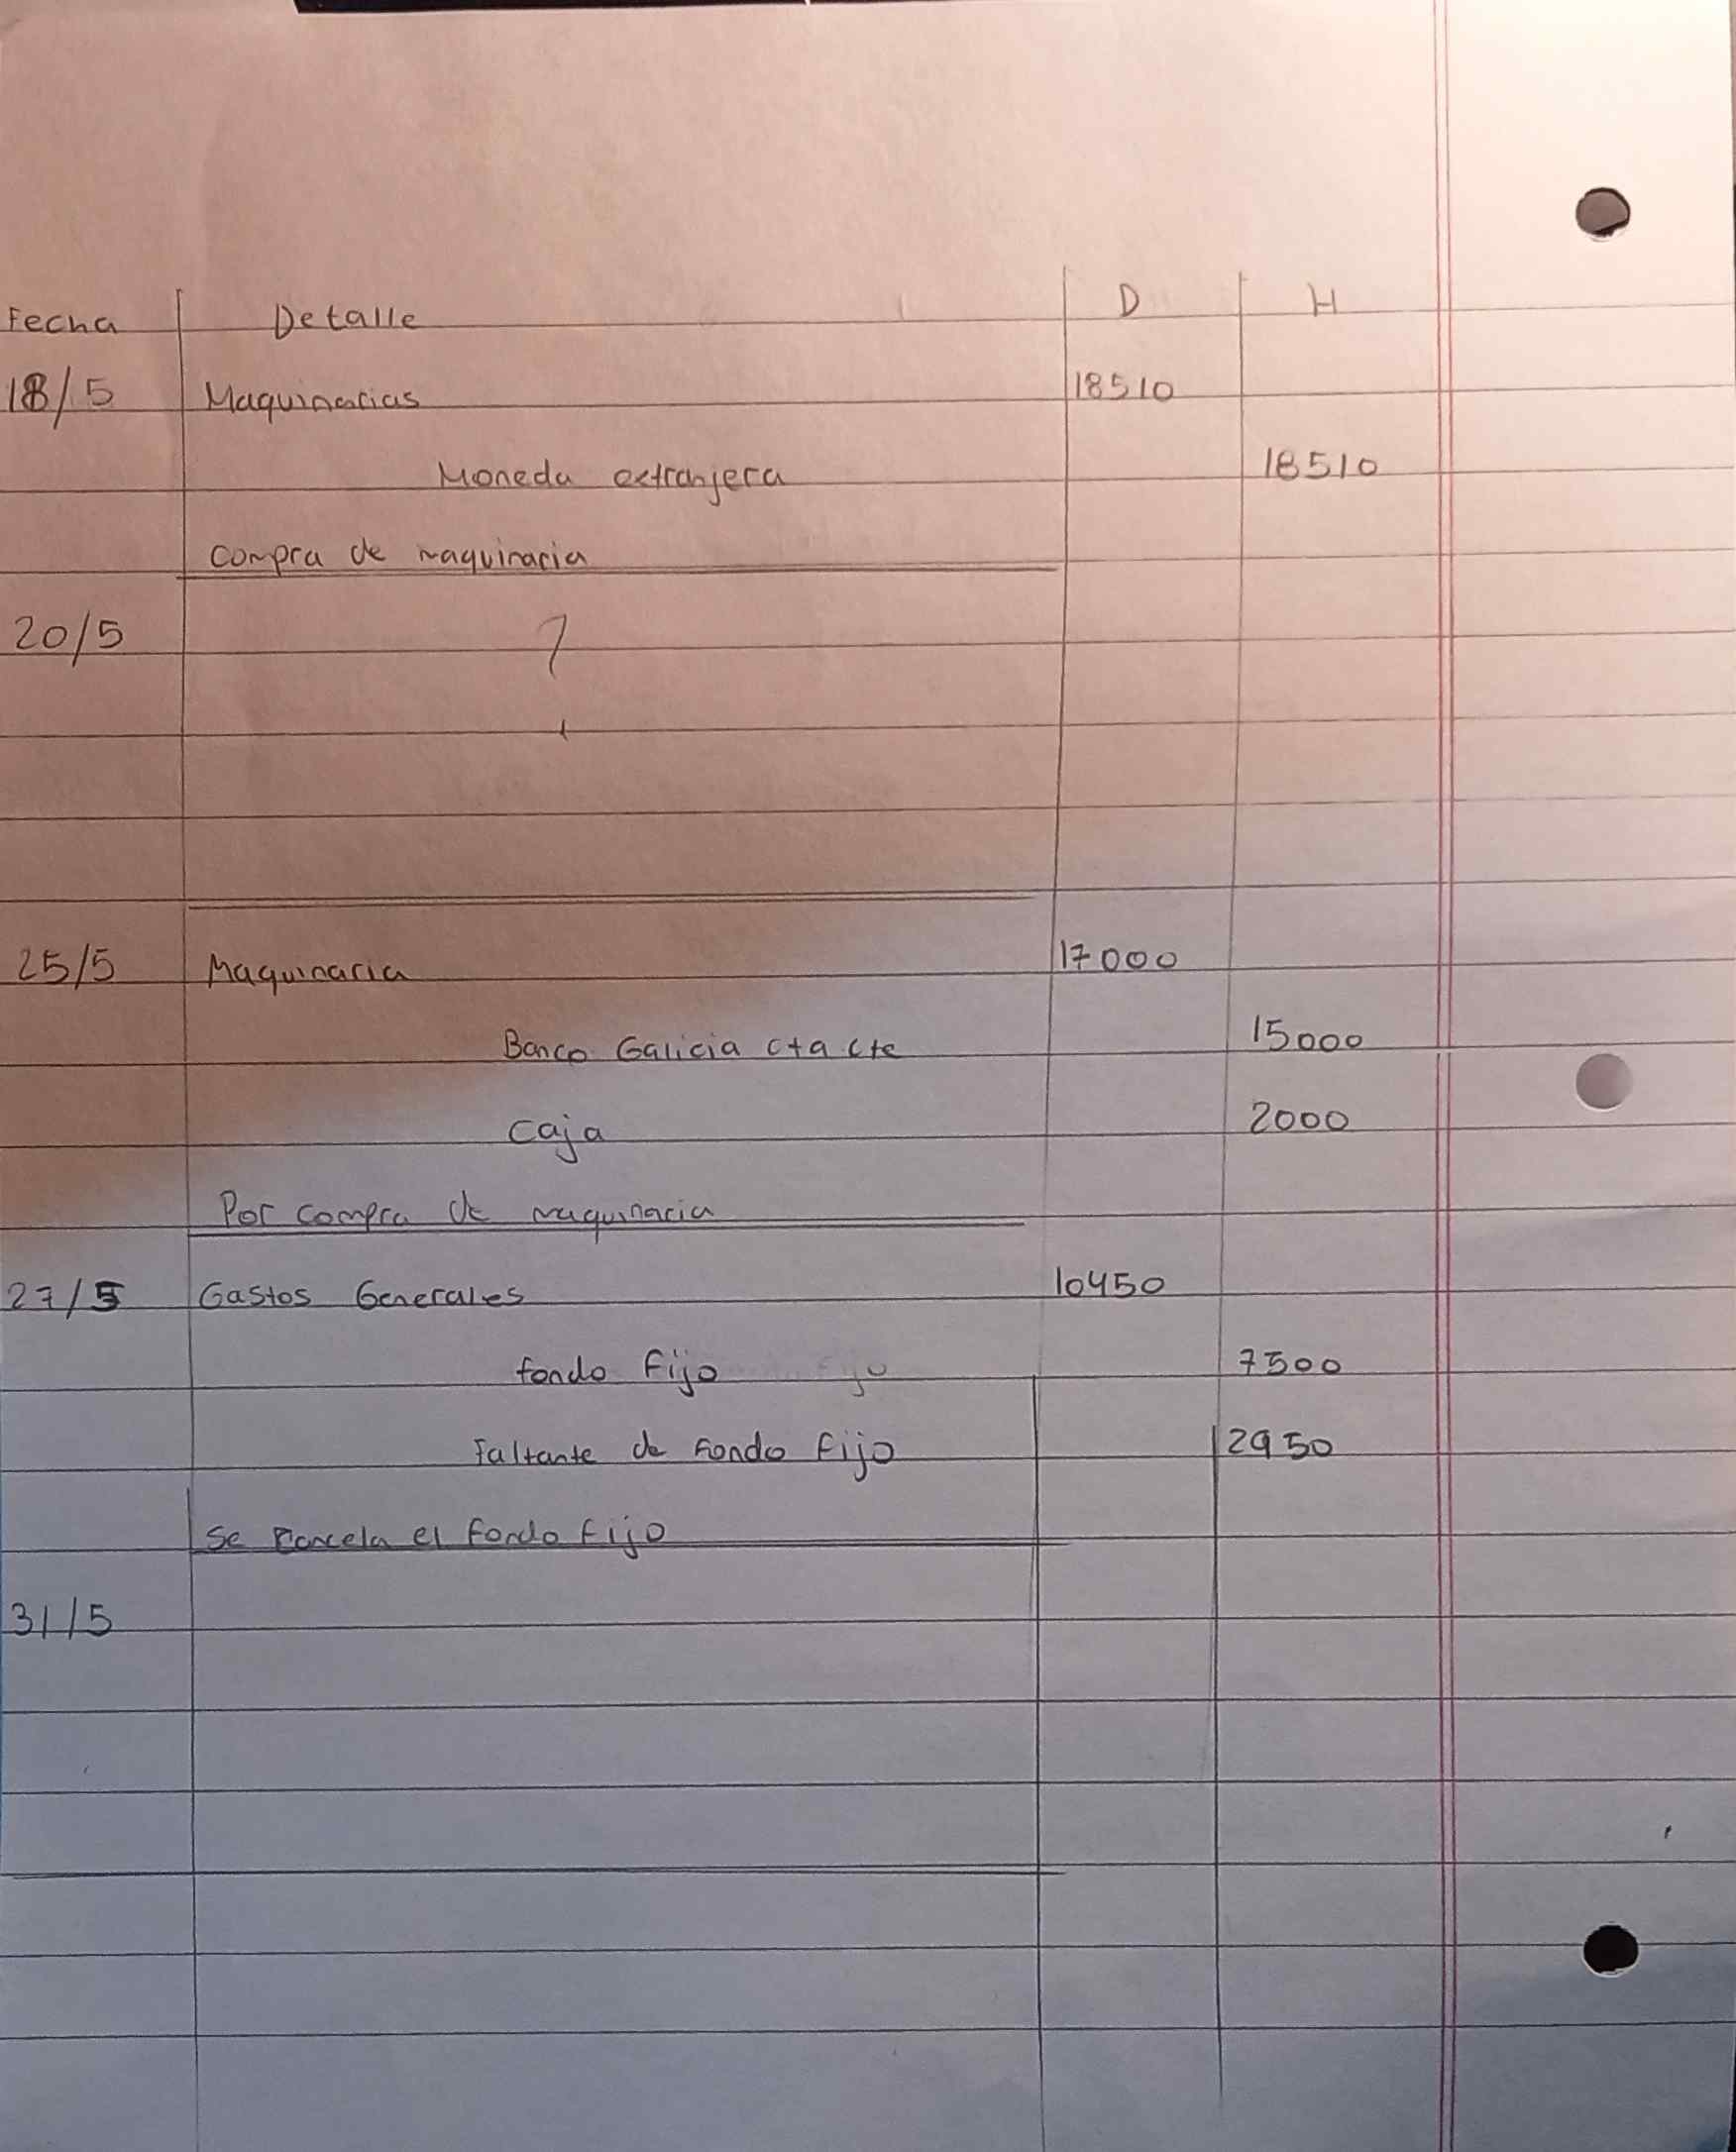 Fecha Detalle D H
18/5 Maquinarias 18510
Moneda extranjera 18510
compra de maquinaria
20/5 ?
25/5 Maquinaria 17000
Banco Galicia cta cte 15000
Caja 2000
Por compra de maquinaria
27/5 Gastos Generales 10450
fondo Fijo 7500
Faltante de Fondo Fijo 2950
Se cancela el Fondo Fijo
31/5